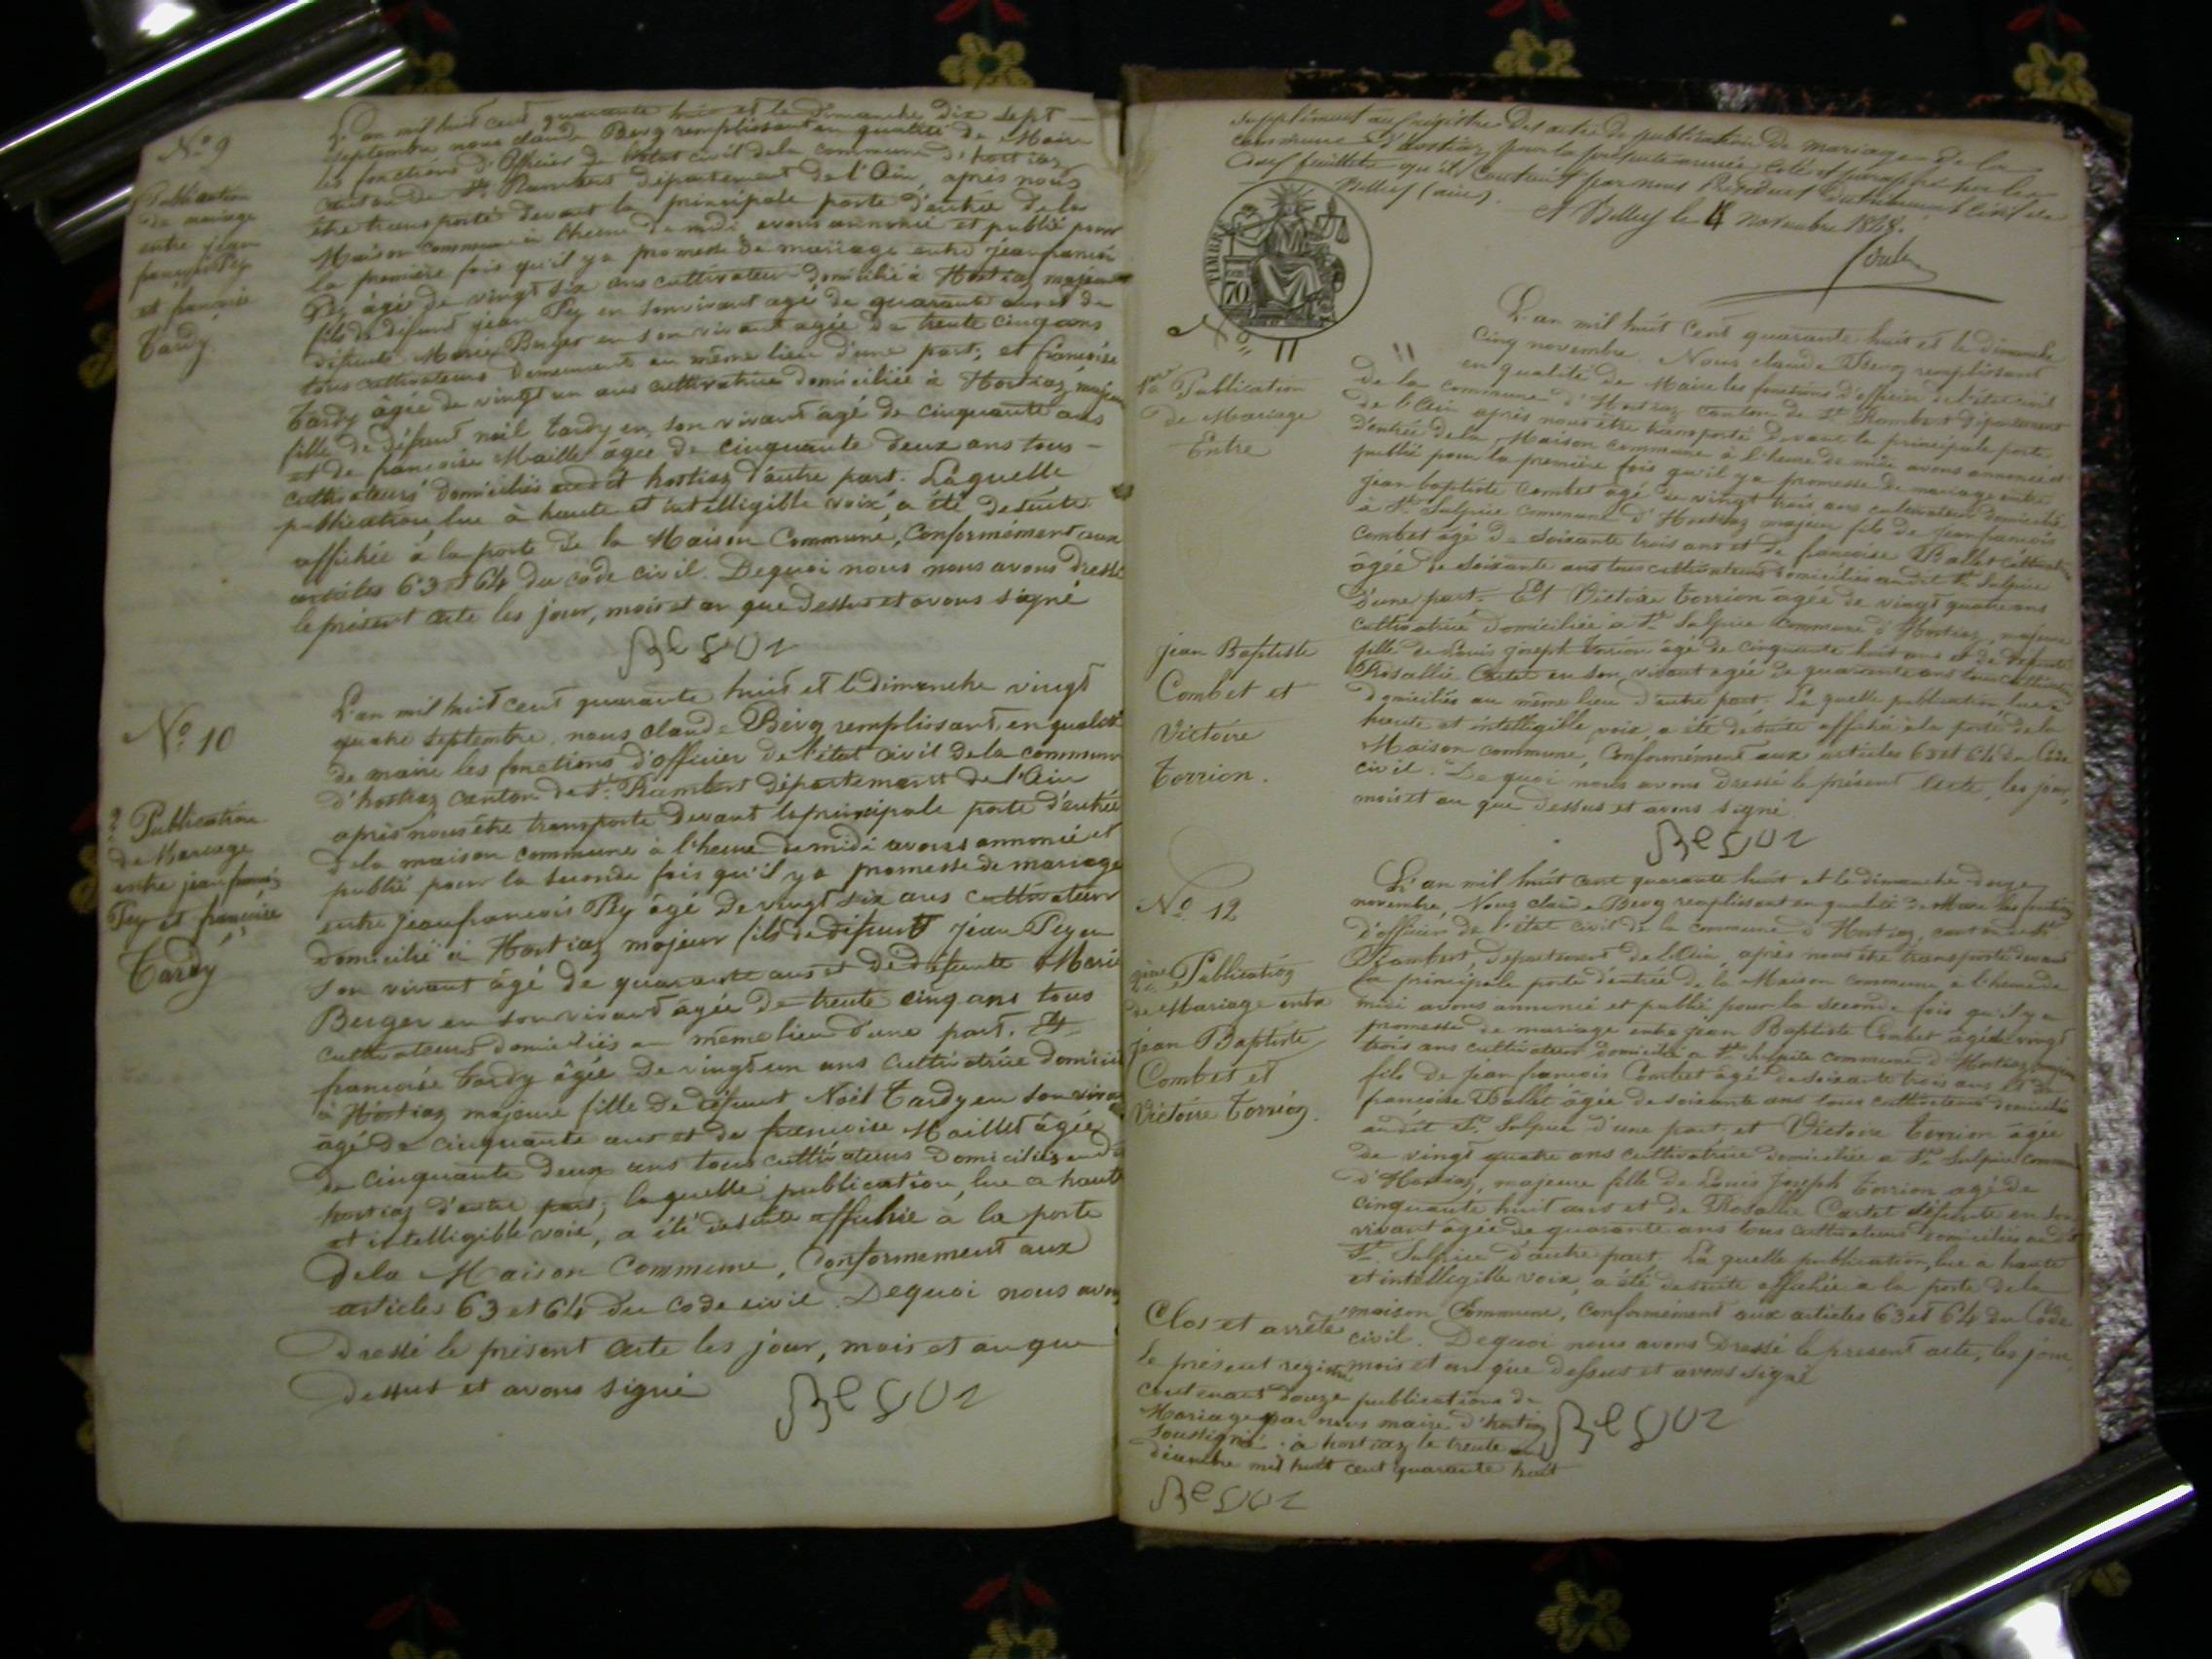 N.o 9
Publication
de mariage
entre jean
françois Pey
et françoise
Tardy
L'an mil huit cent quarante huit et le dimanche dix sept
septembre nous claude Bevoz remplissant en qualité de Maire
les fonctions d'Officier de l'état civil de la commune d'hostiaz
canton de St. Rambert département de l'Ain, après nous
être transporté devant la principale porte d'entrée de la
Maison commune à l'heure de midi avons annoncé et publié pour
la première fois qu'il y a promesse de mariage entre jean françois
Pey âgé de vingt six ans cultivateur domicilié à Hostiaz majeur
fils de défunt jean Pey en son vivant agé de quarante ans et de
défunte Marie Berger en son vivant agée de trente cinq ans
tous cultivateurs demeurant au même lieu d'une part; et françoise
Tardy âgée de vingt un ans cultivatrice domiciliée à Hostiaz, majeure
fille de défunt noël Tardy en son vivant agé de cinquante ans
et de françoise Maillet âgée de cinquante deux ans tous
cultivateurs domiciliés audit hostiaz d'autre part. Laquelle
publication, lue à haute et intelligible voix, a été desuite
affichée à la porte de la Maison Commune, Conformément aux
articles 63 et 64 du code civil. Dequoi nous nous avons dressé
le présent acte les jour, mois et an que dessus et avons signé
Bevoz
N.o 10
2e Publication
de Mariage
entre jean françois
Pey et françoise
Tardy
L'an mil huit cent quarante huit et le dimanche vingt
quatre septembre, nous claude Bevoz remplissant, en qualité
de maire les fonctions d'officier de l'état civil de la commune
d'hostiaz canton de St. Rambert département de l'Ain
après nous être transporté devant la principale porte d'entrée
de la maison commune à l'heure de midi avons annoncé et
publié pour la seconde fois qu'il y a promesse de mariage
entre jean françois Pey âgé de vingt six ans cultivateur
domicilié à Hostiaz majeur fils de défunt jean Pey en
son vivant âgé de quarante ans et de défunte Marie
Berger en son vivant agée de trente cinq ans tous
cultivateurs domiciliés au même lieu d'une part. Et
françoise Tardy âgée de vingt un ans cultivatrice domiciliée
à Hostiaz majeure fille de défunt Noël Tardy en son vivant
âgé de cinquante ans et de françoise Maillet âgée
de cinquante deux ans tous cultivateurs domiciliés audit
hostiaz d'autre part; laquelle publication, lue a haute
et intelligible voie, a été desuite affichée à la porte
de la Maison Commune, Conformement aux
articles 63 et 64 du code civil. Dequoi nous avons
dressé le présent acte les jour, mois et an que
dessus et avons signé
Bevoz
supplément au registre des actes de publication de mariage de la
commune d'hostiaz pour la présente année, coté et paraphé sur les
feuillets qu'il contient par nous Président du tribunal civil de
Belley (ain).
A Belley le 4 novembre 1848.
TIMBRE
70
N.o 11
1ère Publication
de Mariage
Entre
jean Baptiste
Combet et
Victoire
Torrion.
L'an mil huit Cent quarante huit et le dimanche
cinq novembre. Nous claude Bevoz remplissant
en qualité de Maire les fonctions d'officier de l'état civil
de la commune d'Hostiaz canton de St. Rambert département
de l'Ain après nous être transporté devant la principale porte
d'entrée de la Maison commune à l'heure de midi avons annoncé et
publié pour la première fois qu'il y a promesse de mariage entre
jean baptiste Combet agé de vingt trois ans cultivateur domicilié
à St. Sulpice commune d'Hostiaz majeur fils de jean françois
Combet âgé de soixante trois ans et de françoise Ballet cultivatrice
âgée de soixante ans tous cultivateurs domiciliés audit St. Sulpice
d'une part. Et Victoire Torrion âgée de vingt quatre ans
cultivatrice domiciliée a St. Sulpice commune d'Hostiaz, majeure
fille de Louis joseph Torrion âgé de cinquante huit ans et de défunte
Rosallie Cartet en son vivant agée de quarante ans tous cultivateurs
domiciliés au même lieu d'autre part. La quelle publication, lue a
haute et intelligible voix, a été desuite affichée à la porte de la
Maison commune, Conformément aux articles 63 et 64 du Code
civil. De quoi nous avons dressé le présent acte, les jour,
mois et an que dessus et avons signé
Bevoz
N.o 12
2ème Publication
de Mariage entre
jean Baptiste
Combet et
Victoire Torrion.
L'an mil huit cent quarante huit et le dimanche douze
novembre, Nous claude Bevoz remplissant en qualité de Maire les fonctions
d'officier de l'état civil de la commune d'Hostiaz, canton de St.
Rambert, département de l'Ain, après nous être transporté devant
la principale porte d'entrée de la Maison commune, à l'heure de
midi avons annoncé et publié pour la seconde fois qu'il y a
promesse de mariage entre jean Baptiste Combet âgé de vingt
trois ans cultivateur domicilié a St. Sulpice commune d'Hostiaz, majeur
fils de jean françois Combet âgé de soixante trois ans et de
françoise Ballet âgée de soixante ans tous cultivateurs domiciliés
audit St. Sulpice d'une part. et Victoire Torrion âgée
de vingt quatre ans cultivatrice domiciliée a St. Sulpice commune
d'Hostiaz, majeure fille de Louis joseph Torrion agé de
cinquante huit ans et de Rosallie Cartet défunte en son
vivant âgée de quarante ans tous cultivateurs domiciliés audit
St. Sulpice d'autre part. La quelle publication, lue a haute
et intelligible voix, a été desuite affichée a la porte de la
maison Commune, Conformément aux articles 63 et 64 du Code
civil. Dequoi nous avons dressé le present acte, les jour,
mois et an que dessus et avons signé
Bevoz
Clos et arrêté
le présent registre
contenant douze publications de
Mariage par nous maire d'hostiaz
soussigné. à hostiaz le trente un
décembre mil huit cent quarante huit
Bevoz